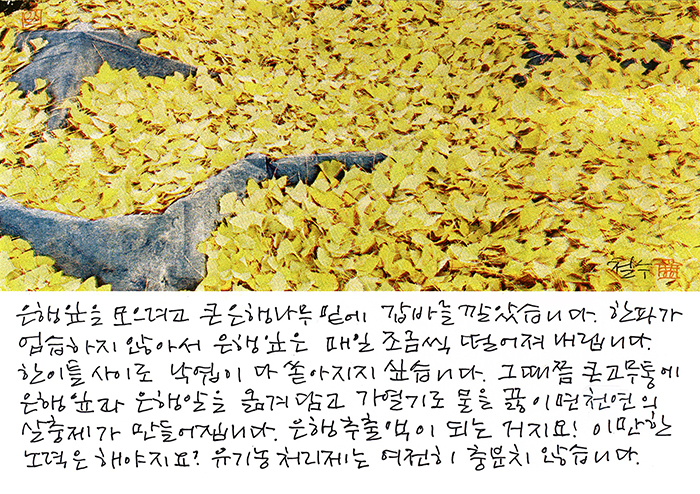 철수
은행잎을 모으려고 큰 은행나무 밑에 갑바를 깔았습니다. 한파가
엄습하지 않아서 은행잎은 매일 조금씩 떨어져 내립니다.
한이틀 사이로 낙엽이 다 쏟아지지 싶습니다. 그때쯤 큰고무통에
은행잎과 은행알을 옮겨담고 가열기로 물을 끓이면 천연의
살충제가 만들어집니다. 은행추출액이 되는 거지요! 이만한
노력은 해야지요? 유기농처리제는 여전히 충분치 않습니다.